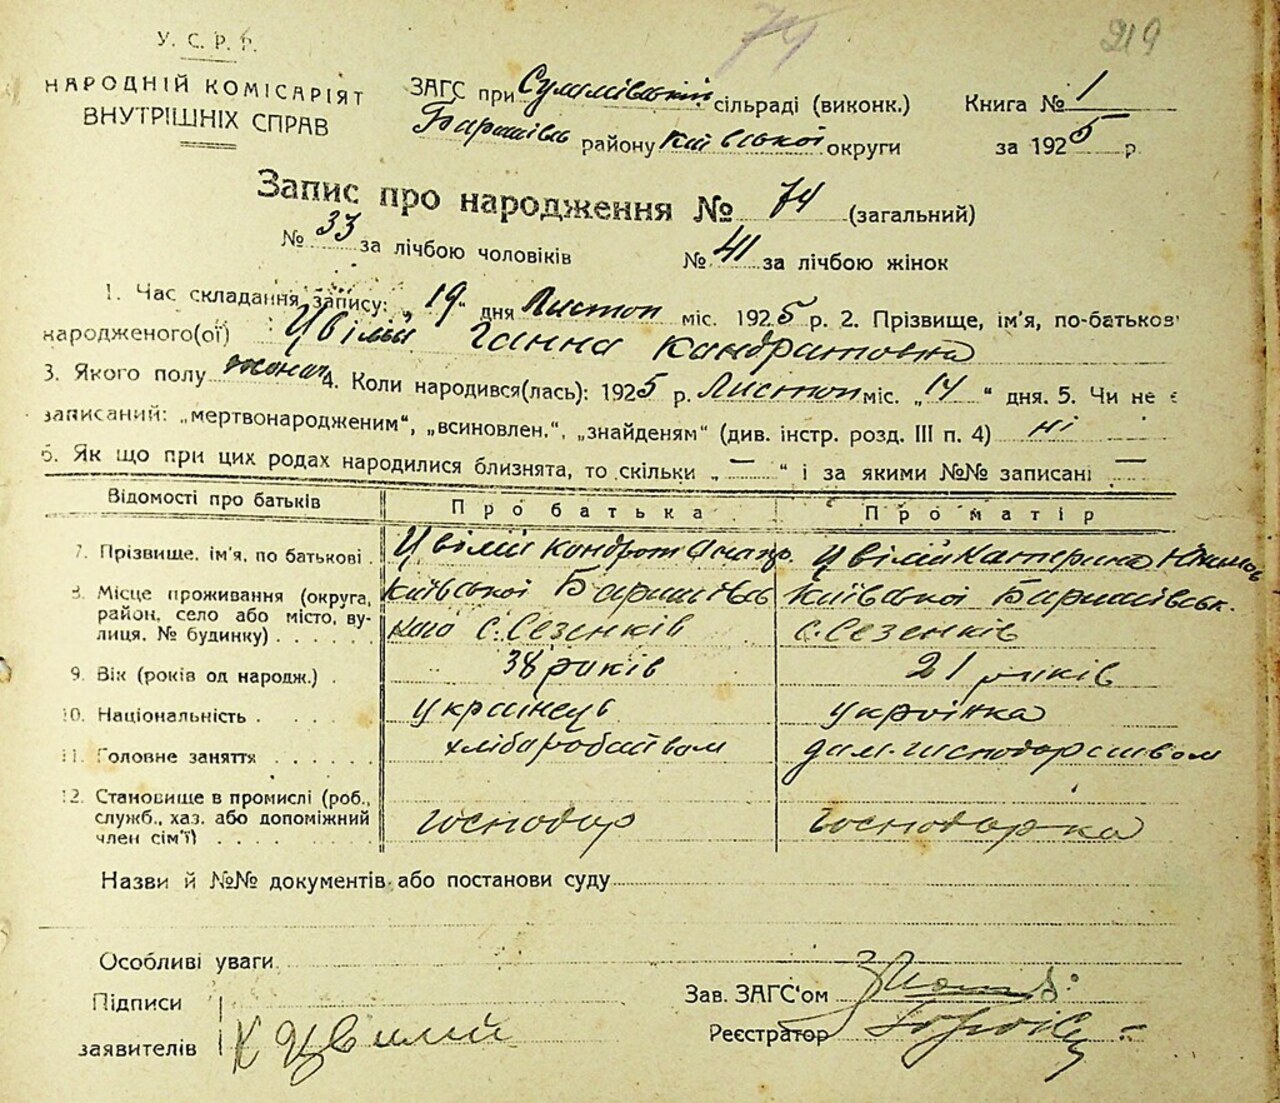 74
219
У. С. Р. Р.
НАРОДНІЙ КОМІСАРІЯТ
ВНУТРІШНІХ СПРАВ
ЗАГС при Сулимівській сільраді (виконк.)
Баришівськ району Київської округи
Книга № 1
за 1925 р.
Запис про народження № 74 (загальний)
№ 33 за лічбою чоловіків № 41 за лічбою жінок
1. Час складання запису: „19" дня Листоп міс. 1925 р. 2. Прізвище, ім'я, по-батьков
народженого(ої) Цвілий Ганна Кандратовна
3. Якого полу жоноч 4. Коли народився(лась): 1925 р. Листоп міс. „14" дня. 5. Чи не є
записаний: „мертвонародженим", „всиновлен.", „знайденям" (див. інстр. розд. III п. 4) ні
6. Як що при цих родах народилися близнята, то скільки „—" і за якими №№ записані —
Відомості про батьків Про батька Про матір
7. Прізвище, ім'я, по батькові Цвілий Кондрат Цвілий Катерина
8. Місце проживання (округа, Київської Баришівсь Київської Баришівськ.
район, село або місто, ву-
лиця, № будинку) кого с. Сезенків с. Сезенків
9. Вік (років од народж.) 38 років 21 років
10. Національність українець українка
11. Головне заняття хліборобством дом. господарством
12. Становище в промислі (роб.,
служб., хаз. або допоміжний
член сім'ї) господар господарка
Назви й №№ документів або постанови суду
Особливі уваги
Підписи
заявителів К Цвилий
Зав. ЗАГС'ом
Реєстратор